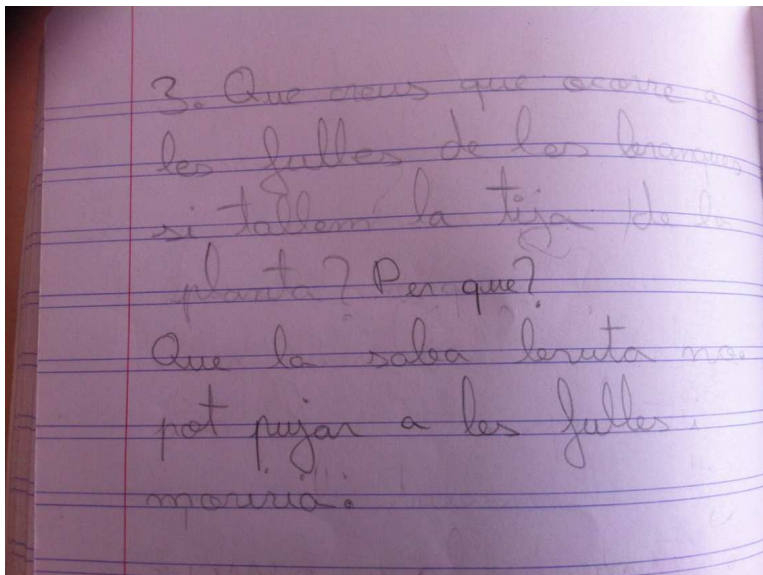 3. Que creus que ocorre a
les fulles de les branques
si tallem la tija de la
planta? Perque?
Que la saba bruta no
pot pujar a les fulles i
moriria.